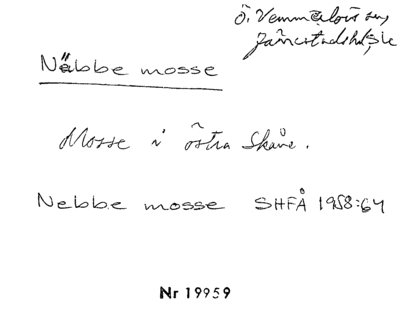 Ö. Vemmerlövs sn,
Järrestads hd, Sk
Näbbe mosse
Mosse i östra Skåne.
Nebbe mosse SHFÅ 1958:64
Nr 19959